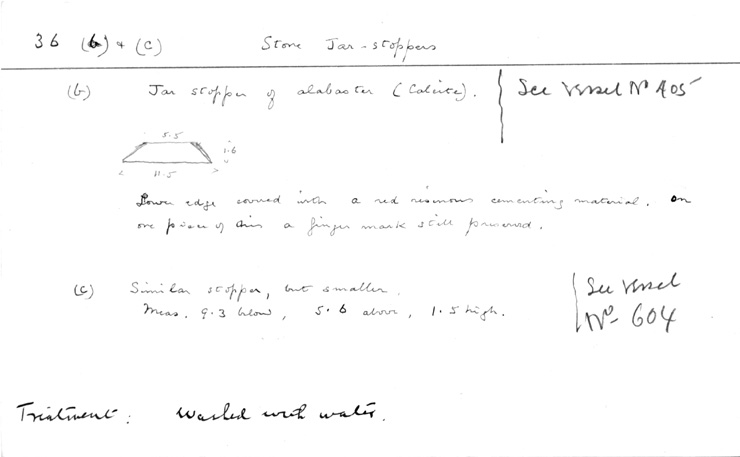 36 (b) + (c) Stone Jar-stoppers
(b) Jar stopper of alabaster (Calcite). See Vessel No 405
5.5
1.6
11.5
Lower edge covered with a red resinous cementing material. On
one piece of this a finger mark still preserved.
(c) Similar stopper, but smaller. See Vessel
Meas. 9.3 below, 5.6 above, 1.5 high. No- 604
Treatment: Washed with water.